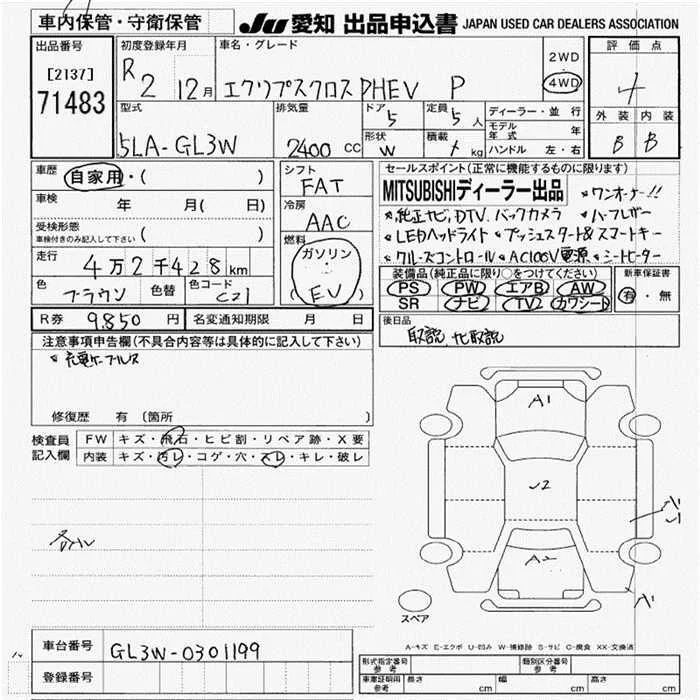 車内保管・守衛保管 JU 愛知 出品申込書 JAPAN USED CAR DEALERS ASSOCIATION
出品番号 [2137] 71483
初度登録年月 R2 12月
車名・グレード エクリプスクロスPHEV P
2WD 4WD
評価点 4
外装 内装
B B
型式 5LA-GL3W
排気量 2400 CC
ドア 5 定員 5人
形状 W 積載 kg
ディーラー・並行
モデル年式 年
ハンドル 左・右
車歴 自家用・( )
車検 年 月( 日)
受検形態 車検付きのみ記入して下さい ( )
走行 4万2千428km
色 ブラウン 色替 色コード C21
シフト FAT
冷房 AAC
燃料 ガソリン (EV)
セールスポイント(正常に機能するものに限ります)
MITSUBISHIディーラー出品 *ワンオーナー!!
*純正ナビ,DTV,バックカメラ *ハーフレザー
*LEDヘッドライト *プッシュスタート&スマートキー
*クルーズコントロール *AC100V電源 *シートヒーター
装備品(純正品に限り○をつけてください) 新車保証書
PS PW エアB AW 有・無
SR ナビ TV カワシート
R券 9,850 円 名変通知期限 月 日
後日品
取説,ナビ取説
注意事項申告欄(不具合内容等は具体的に記入して下さい)
*充電ケーブルス
修復歴 有 (箇所 )
検査員記入欄 FW キズ・飛石・ヒビ割・リペア跡・X要
内装 キズ・汚レ・コゲ・穴・スレ・キレ・破レ
A1
2
A2
A1
スペア
A-キズ E-エクボ U-凹み W-補修跡 S-サビ C-腐食 XX-交換済
車台番号 GL3W-0301199
登録番号
形式指定番号 参考 類別区分番号 参考
車庫証明用 参考 長さ cm 幅 cm 高さ cm